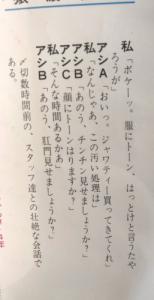 私「ボケーッ。服にトーン、はっとけと言うたや
ろうが」
アシA「おいっ。ジャワティー買ってきてくれ」
私「なんじゃあ、この汚い処理は」
アシB「あのう、チンチン見せましょうか？」
アシC「顔にトーンはりますか？」
私「そんな時間あるかあ」
アシB「あのう、肛門見せましょうか？」
〆切数時間前の、スタッフ達との壮絶な会話で
ある。